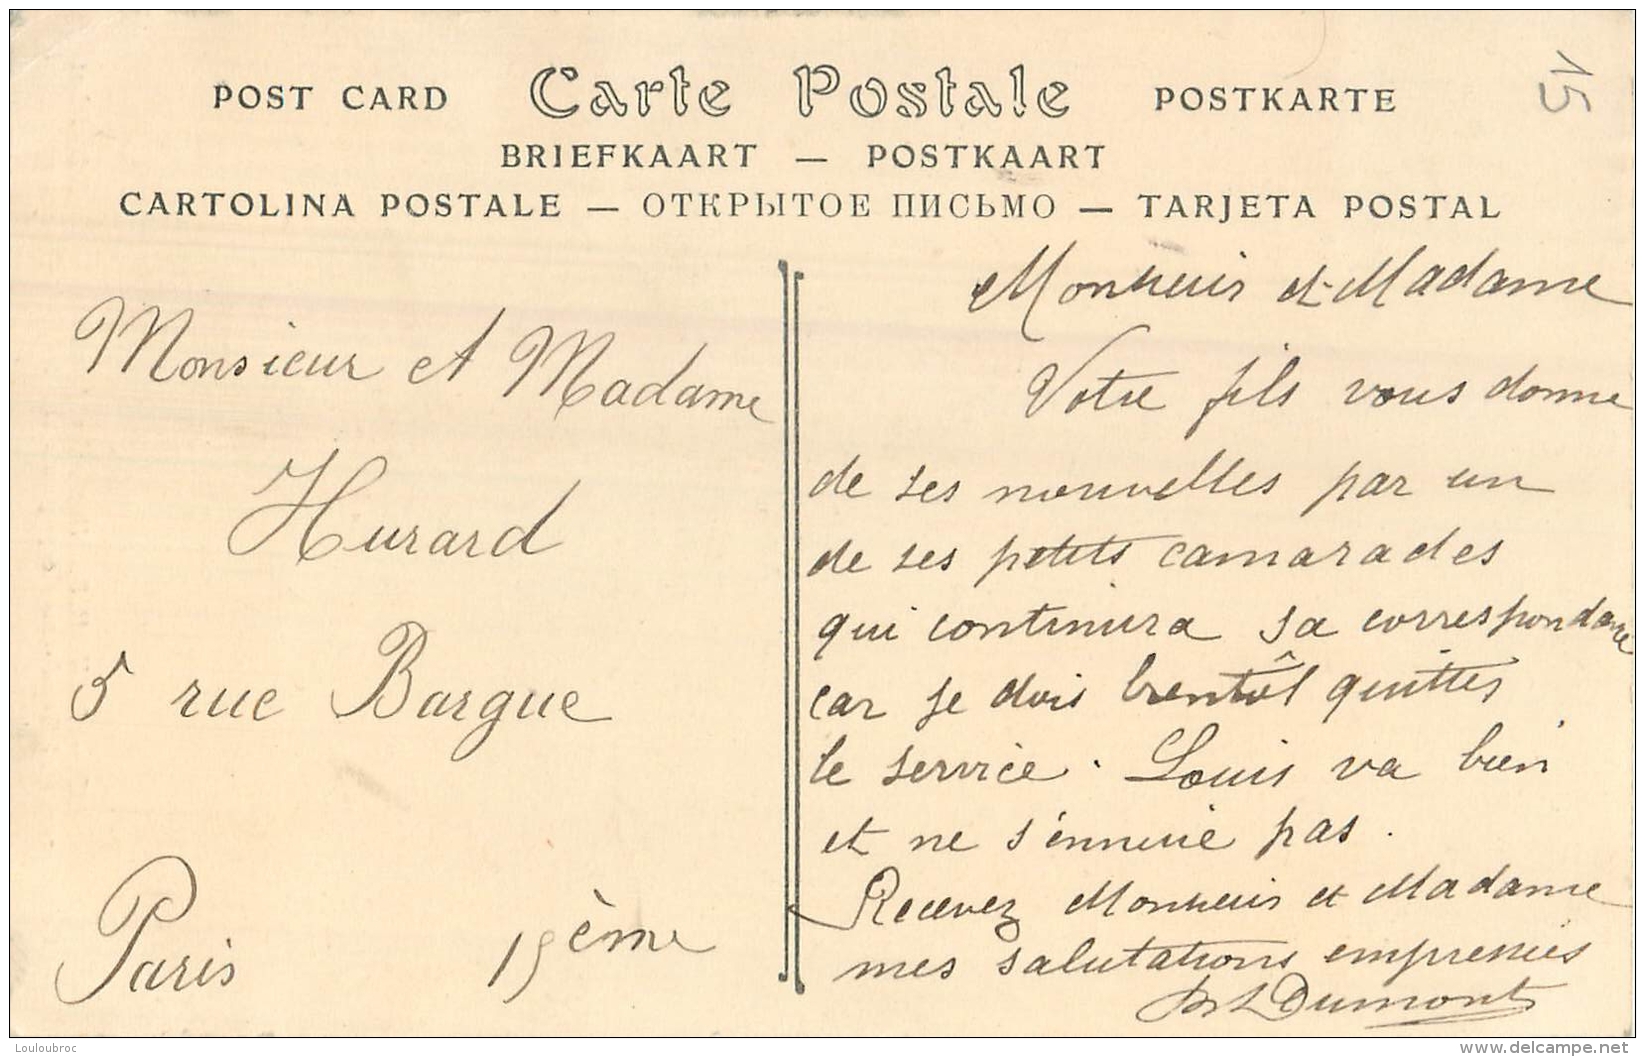 15
POST CARD Carte Postale POSTKARTE
BRIEFKAART — POSTKAART
CARTOLINA POSTALE — ОТКРЫТОЕ ПИСЬМО — TARJETA POSTAL
Monsieur et Madame
Hurard
5 rue Bargue
Paris 15ème
Monsieur et Madame
Votre fils vous donne
de ses nouvelles par un
de ses petits camarades
qui continura sa correspondance
car je dois bientôt quitter
le service. Louis va bien
et ne s'ennuie pas.
Recevez Monsieur et Madame
mes salutations empressées
Dumont
Louloubroc
delcampe.net